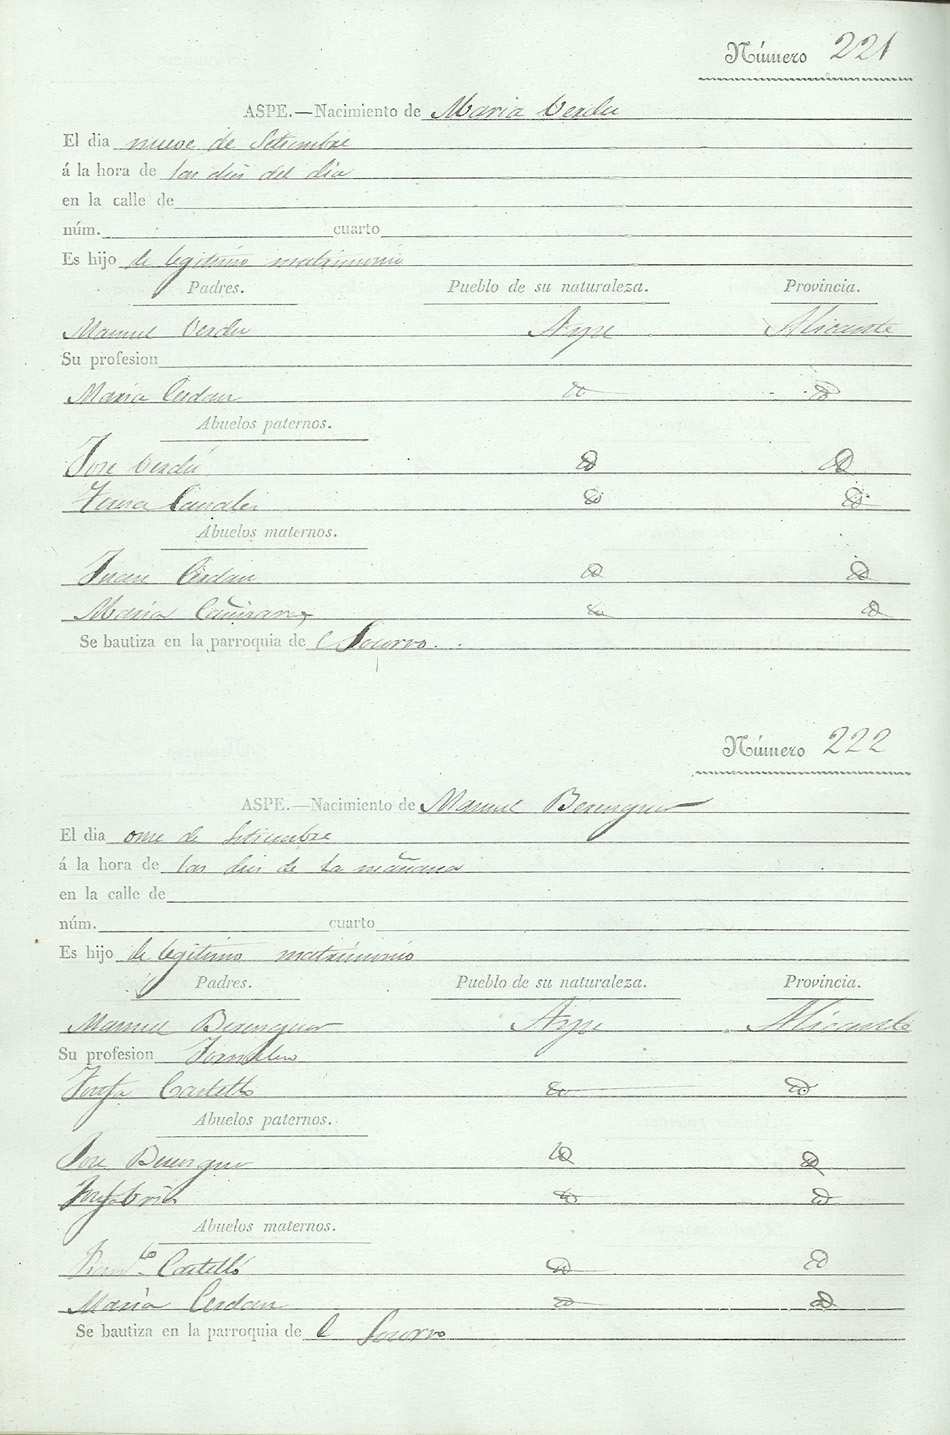 Número 221
ASPE.—Nacimiento de Maria Verdu
El dia nueve de Setiembre
á la hora de las dies del dia
en la calle de
núm. cuarto
Es hijo de legitimo matrimonio
Padres. Pueblo de su naturaleza. Provincia.
Manuel Verdu Aspe Alicante
Su profesion
Maria Cerdan
Abuelos paternos.
Jose Verdú
Teresa
Abuelos maternos.
Juan Cerdan
Maria
Se bautiza en la parroquia de l Socorro.
Número 222
ASPE.—Nacimiento de Manuel Berenguer
El dia onse de Setiembre
á la hora de las dies de la mañana
en la calle de
núm. cuarto
Es hijo de legitimo matrimonio
Padres. Pueblo de su naturaleza. Provincia.
Manuel Berenguer Aspe Alicante
Su profesion Jornalero
Josefa Castelló
Abuelos paternos.
Jose Berenguer
Josefa
Abuelos maternos.
Castelló
Maria Cerdan
Se bautiza en la parroquia de l Socorro